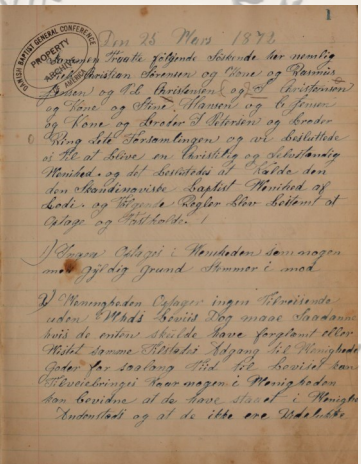 1
DANISH BAPTIST GENERAL CONFERENCE
PROPERTY
ARCHIVE
AMERICA
Den 25 Mars 1872
følgende Söskende her nemlig
Christian Sörensen og Kone og Rasmus
Jensen og P. C. Christensen og S. Christensen
og Kone og Stine Hansen og C. Jensen
og Kone og Broder J. Petersen og Broder
Ring Lote Forsamlingen og vi besluttede
os til at blive en Christelig og Selvstandig
Menihed og det besluttedes at Kalde den
den Skandinaviske Baptist Menihed af
Lodi og Regler blev bestemt at
Optage og Fastholde.
1) Ingen Optages i Menheden som nogen
med gyldig Grund Stemmer i mod
2) Menigheden Optager ingen Tilreisende
uden Beviis Dog maae Saadanne
hvis de enten skulde have forglemt eller
Mistet samme Adgang til Menighed
Goder for saalang Tid til beviset kan
Tilveiebringes Naar nogen i Menigheden
kan bevidne at de have staaet i Menighed
Andensteds og at de ikke ere Udelukte